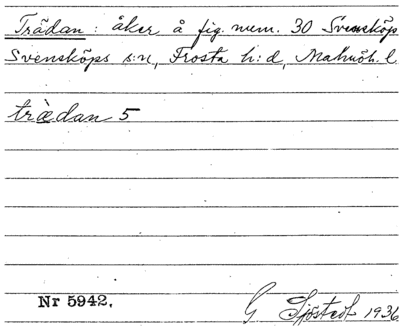 Trädan: åker å fig. mem. 30 Svensköp
Svensköps s:n, Frosta h:d, Malmöh. l.
træ̀dan 5
Nr 5942.
G Sjöstedt 1936